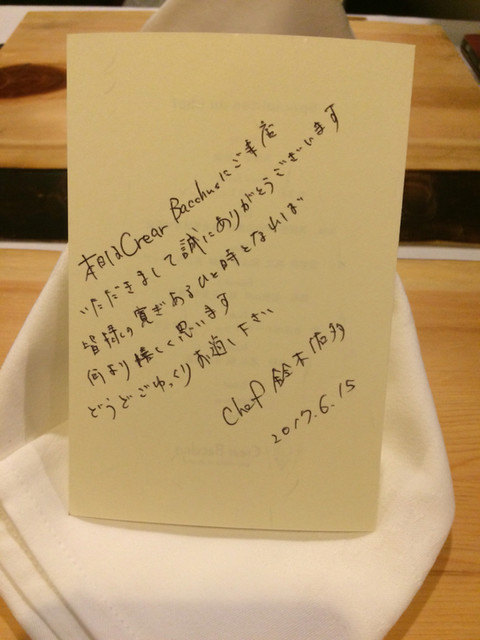 本日はCrear Bacchusにご来店
いただきまして誠にありがとうございます
皆様の寛ぎあるひと時となれば
何より嬉しく思います
どうぞごゆっくりお過し下さい
Chef 鈴木佑多
2017.6.15